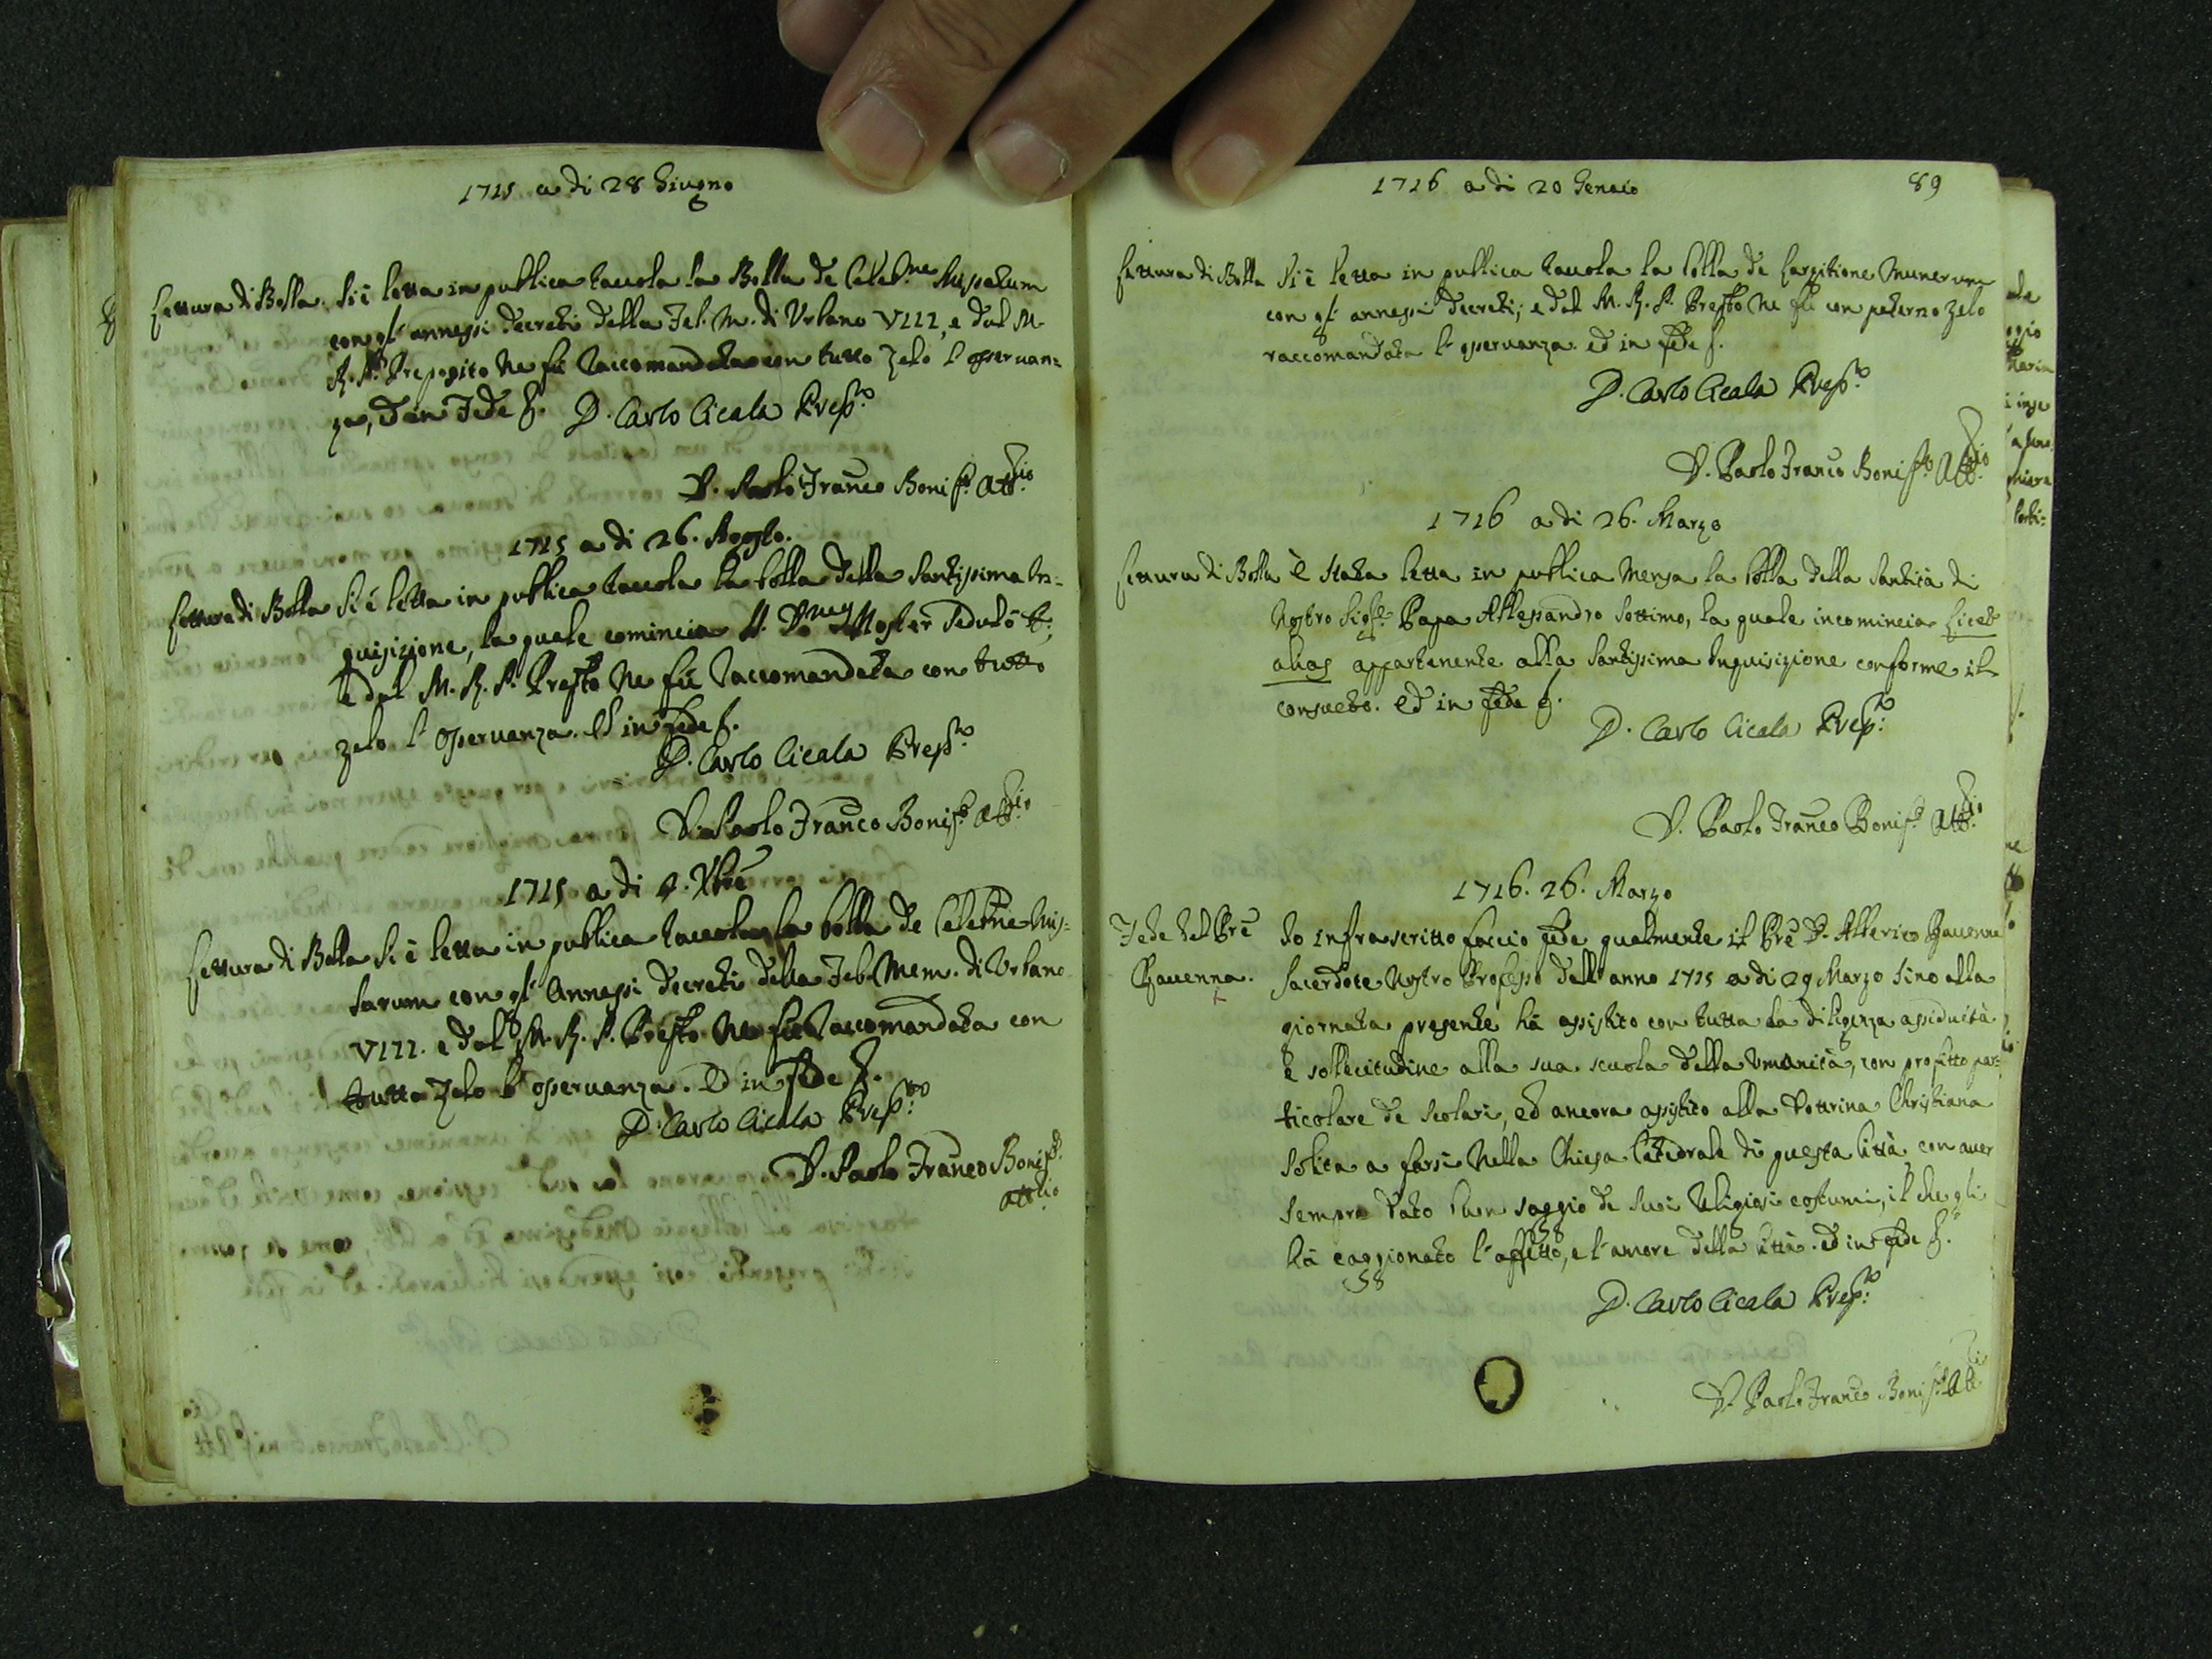 1715 a di 28 Giugno
Lettura di Bolla. Si è letta in publica tauola la Bolla de Celeb.ne Missarum
con gl' annessi decreti della Fel. M. di Vrbano VIII, e dal M.
R. P. Preposito ne fù raccomandata con tutto zelo l' osseruan=
za, ed in Fede &.
D. Carlo Cicala Prep.to
D. Paolo Franco Bonif.o Att.rio
1715 a di 26. Agosto.
Lettura di Bolla Si è letta in publica tauola la bolla della Santissima In=
quisizione, la quale comincia
e dal M. R. P. Prep.to ne fù raccomandata con tutto
zelo l' osseruanza. Ed in fede &.
D. Carlo Cicala Prep.to
D. Paolo Franco Bonif.o Att.rio
1715 a di Xbre
Lettura di Bolla Si è letta in publica tauola la bolla de Celebne Mis=
sarum con gl' annessi decreti della Fel. Mem. di Vrbano
VIII. e dal M. R. P. Prep.to ne fù raccomandata con
tutto zelo l' osseruanza. Ed in fede &.
D. Carlo Cicala Prep.to
D. Paolo Franco Bonif.o
Att.rio
1716 a di 20 Genaio
89
Lettura di Bolla Si è letta in publica tauola la bolla de Largitione Munerum
con gl' annessi decreti; e dal M. R. P. Prep.to ne fù con paterno zelo
raccomandata l' osseruanza. ed in fede &.
D. Carlo Cicala Prep.to
D. Paolo Franco Bonif.o Att.rio
1716 a di 26. Marzo
Lettura di Bolla È stata letta in publica mensa la bolla della Santità di
Nostro Sig.re Papa Allessandro Settimo, la quale incomincia Licet
alias appartenente alla Santissima Inquisizione conforme il
consueto. Ed in fede &.
D. Carlo Cicala Prep.to
D. Paolo Franco Bonif.o Att.rio
1716. 26. Marzo
Fede del Pre
Chauenna.
Io infrascritto faccio fede qualmente il Pre D. Alberico Chauenna
Sacerdote Nostro Professo dell' anno 1715 a di 29 Marzo sino alla
giornata presente hà assistito con tutta la diligenza assiduità
e sollecitudine alla sua scuola della Vmanità, con profitto par=
ticolare de scolari, ed ancora assistito alla Dottrina Christiana
solita a farsi nella Chiesa Catedrale di questa Città con auer
sempre dato buon saggio de suoi religiosi costumi, il che gli
hà caggionato l' affetto, e l' amore della Città. ed in fede &.
D. Carlo Cicala Prep.to
D. Paolo Franco Bonif.o Att.rio